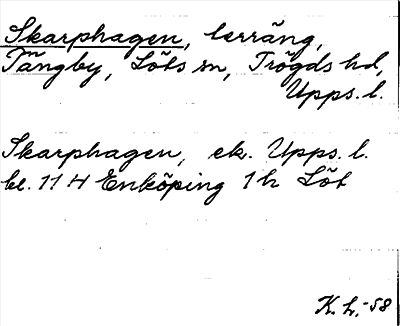 Skarphagen, lerräng,
Tängby, Löts sn, Trögds hd,
Upps. l.
Skarphagen, ek. Upps. l.
bl. 11 H Enköping 1h Löt
K. L. -58